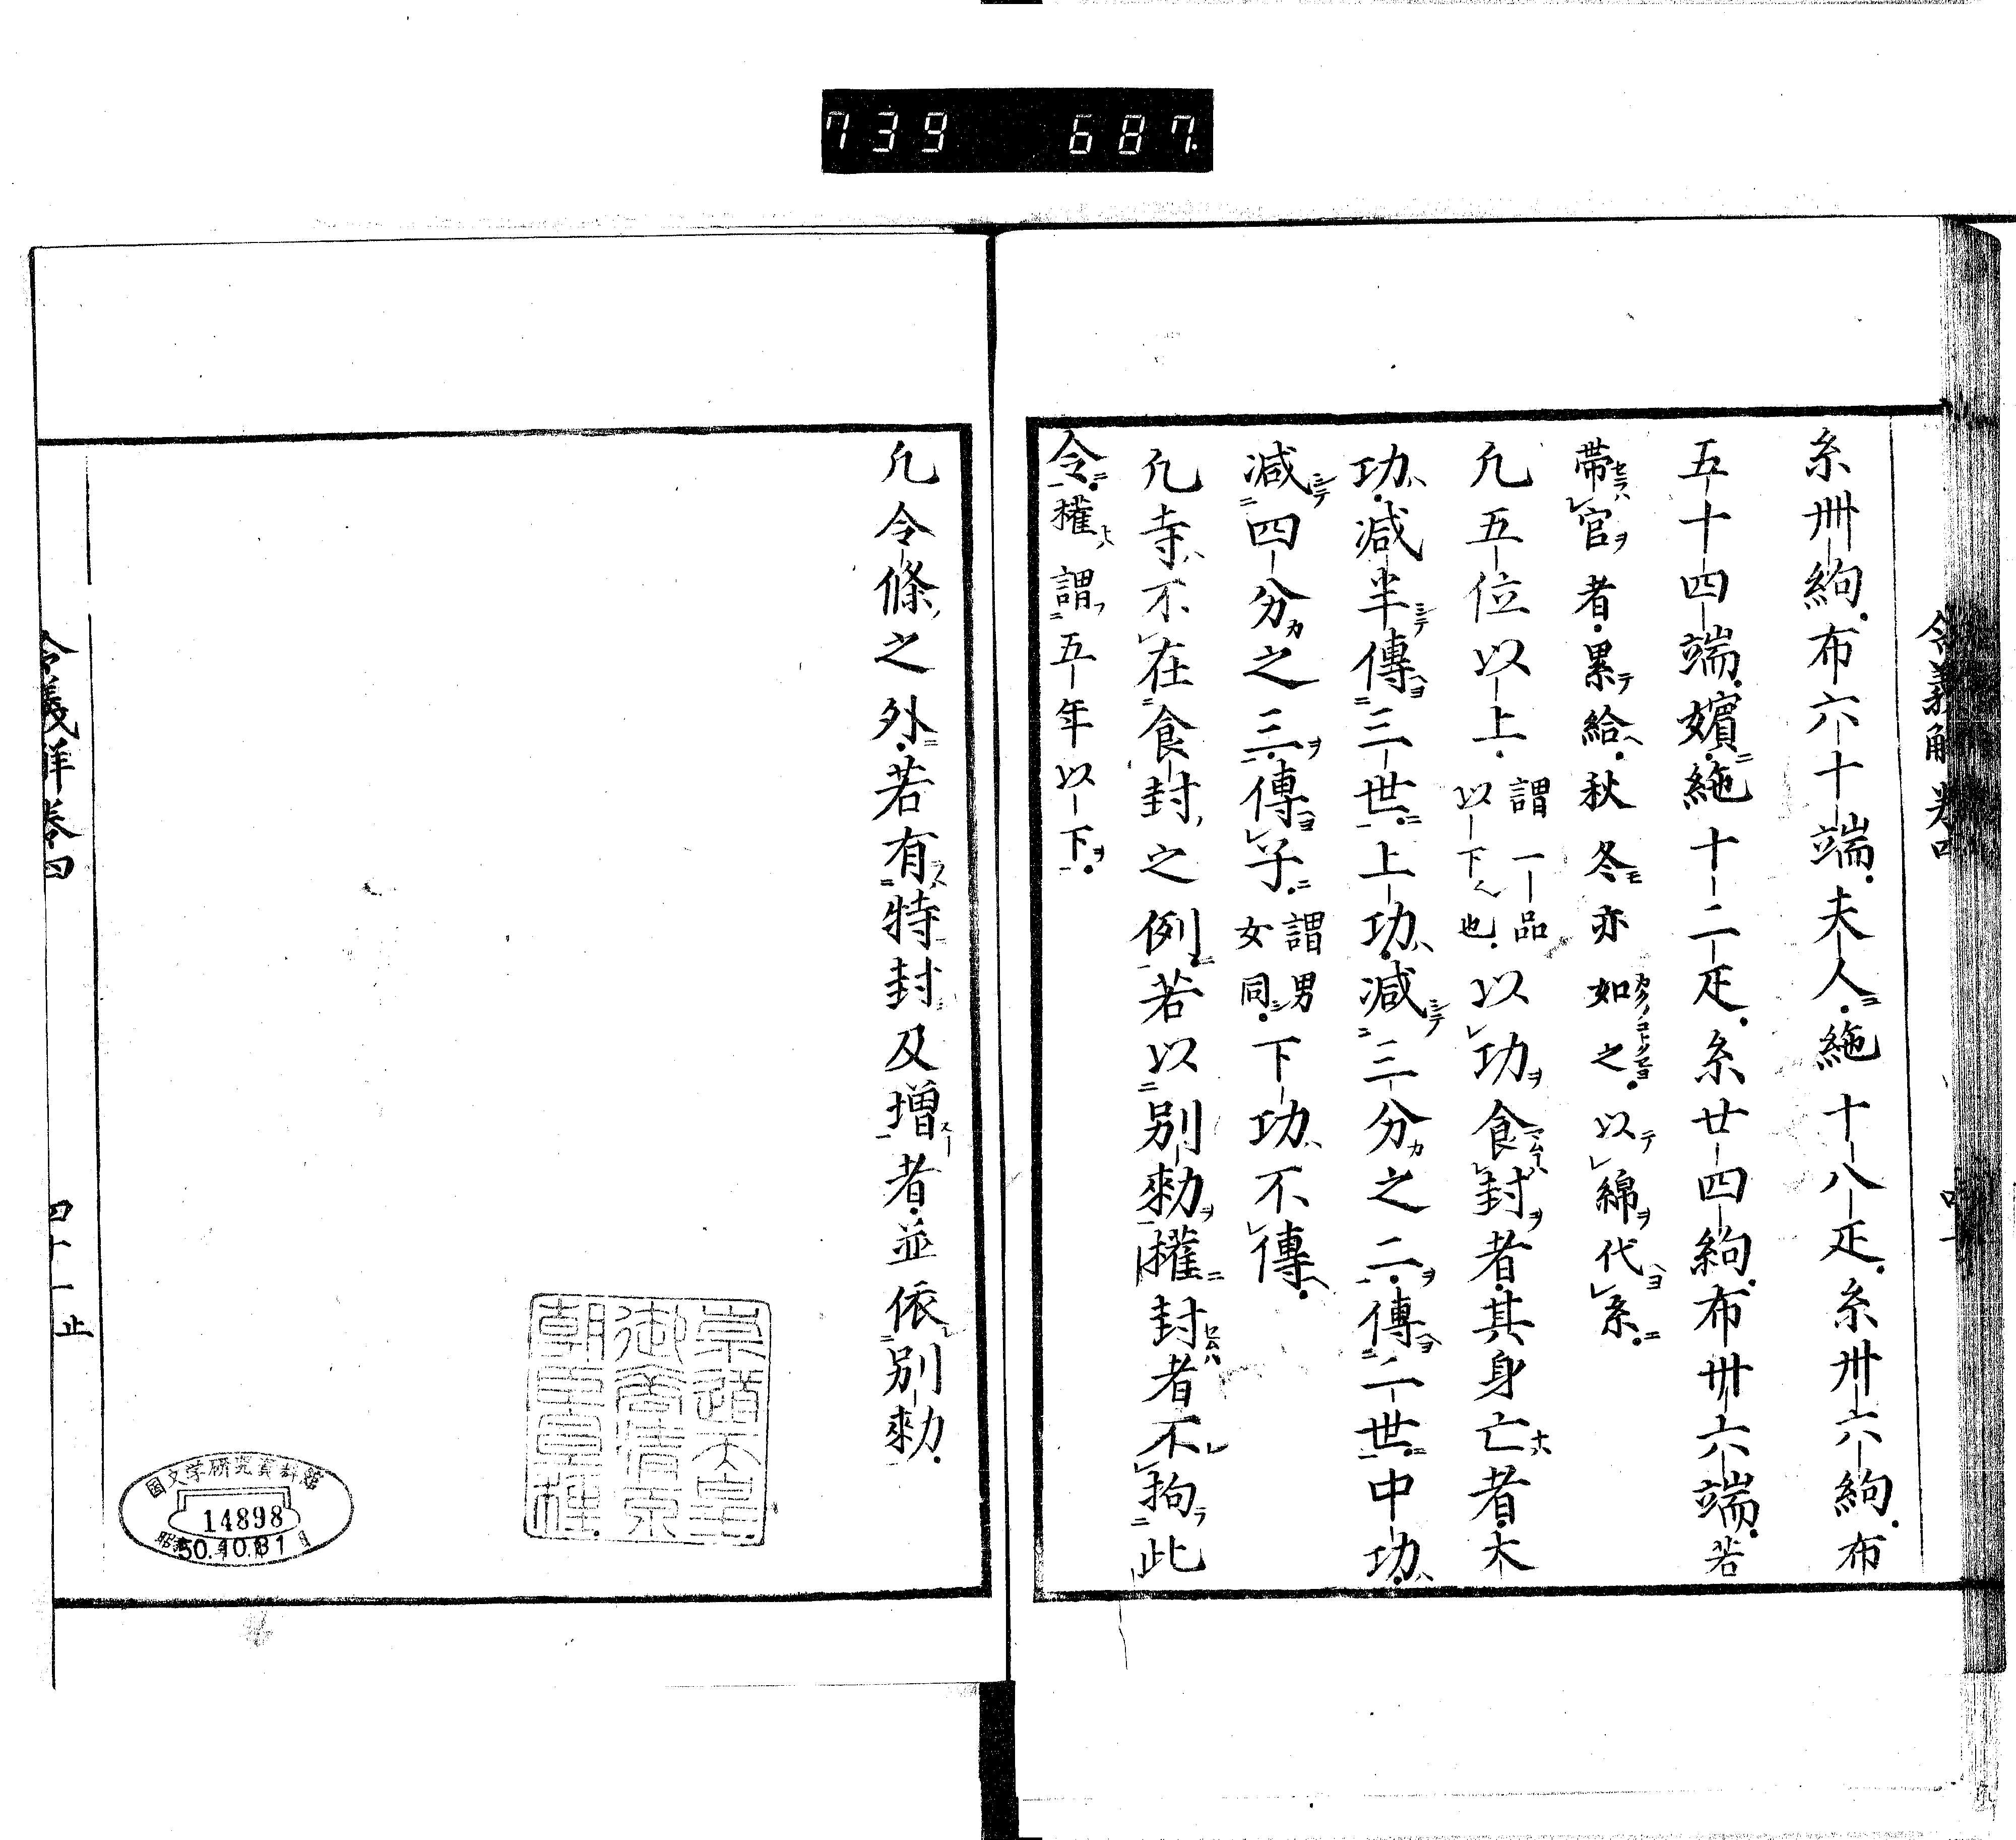 739 687
糸卌絇布六十端夫人絁十八疋糸卅六絇布
五十四端嬪絁十二疋糸廿四絇布卅六端若
帯官者累給秋冬亦如之以綿代糸
凢五位以上謂一品以下也以功食封者其身亡者大
功減半傳三世上功減三分之二傳二世中功
減四分之三傳子謂男女同下功不傳
凢寺不在食封之例若以別勅權封者不拘此
令權謂五年以下
凢令條之外若有特封及増者並依別勅
令義解巻四
四十一止
國文学研究資料館
14898
昭和50.10.31